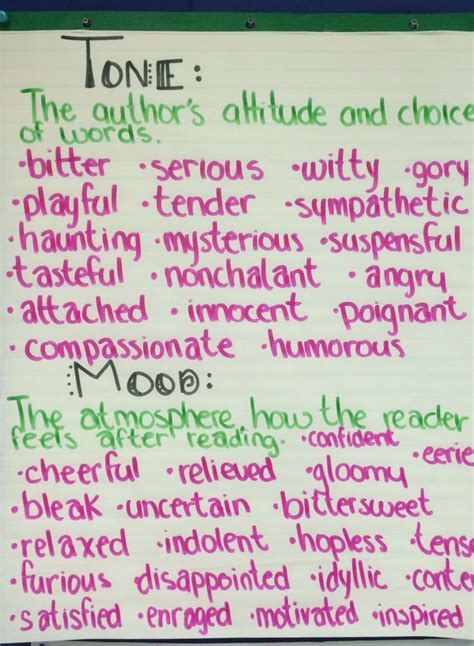 TONE:
The author's attitude and choice
of words.
·bitter ·serious ·witty ·gory
·playful ·tender ·sympathetic
·haunting ·mysterious ·suspensful
·tasteful ·nonchalant ·angry
·attached ·innocent ·poignant
·compassionate ·humorous
MOOD:
The atmosphere, how the reader
feels after reading. ·confident
·eerie
·cheerful ·relieved ·gloomy
·bleak ·uncertain ·bittersweet
·relaxed ·indolent ·hopless ·tense
·furious disappointed ·idyllic ·conte
·satisfied ·enraged ·motivated ·inspired